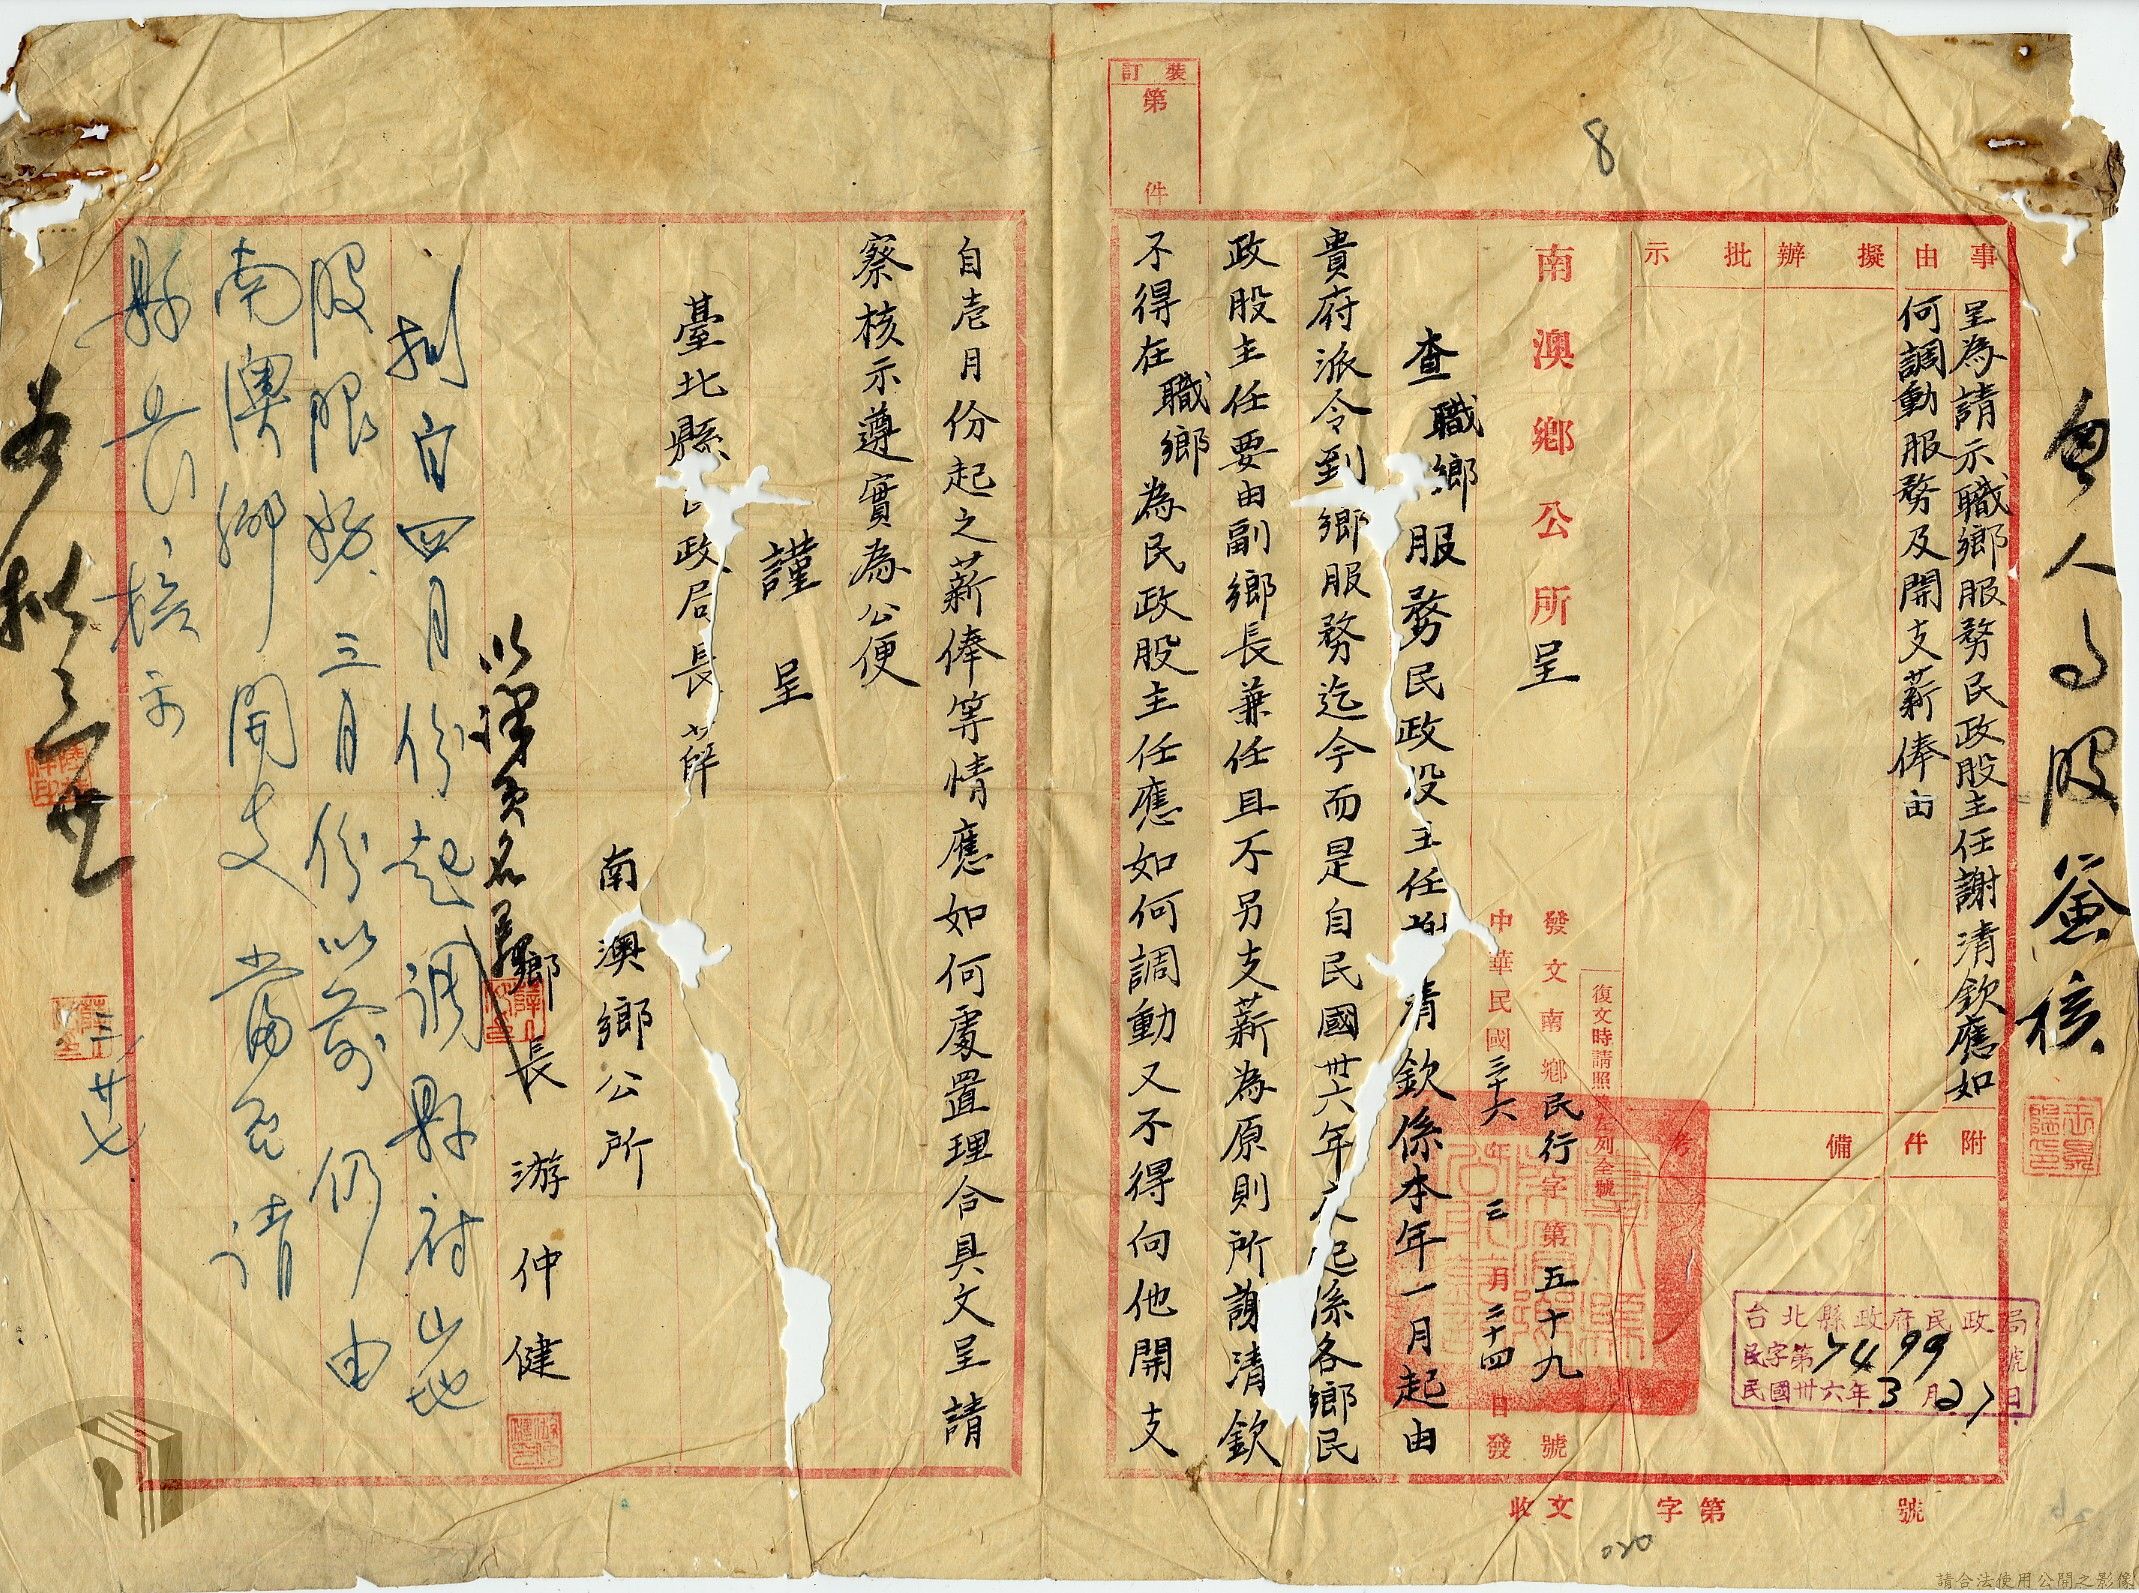 裝訂
第
件
8
會人事股簽核
事由
呈為請示職鄉服務民政股主任謝清欽應如
何調動服務及開支薪俸由
擬辦
批示
附件
備考
南澳鄉公所呈
復文時請照左列全號
發文南鄉民行字第五十九號
中華民國三十六年三月二十四日發
台北縣政府民政局
民字第7499號
民國卅六年3月27日
查職鄉服務民政股主任謝清欽係本年一月起由
貴府派令到鄉服務迄今而是自民國卅六年度起係各鄉民
政股主任要由副鄉長兼任且不另支薪為原則所謝清欽
不得在職鄉為民政股主任應如何調動又不得向他開支
收文字第號
020
自壱月份起之薪俸等情應如何處置理合具文呈請
察核示遵實為公便
謹呈
臺北縣民政局長薛
南澳鄉公所
鄉長游仲健
以課員名義
擬自四月份起調縣府山地
股服務三月份以前仍由
南澳鄉開支當否請
縣長核示
三廿七
如擬
請合法使用公開之影像